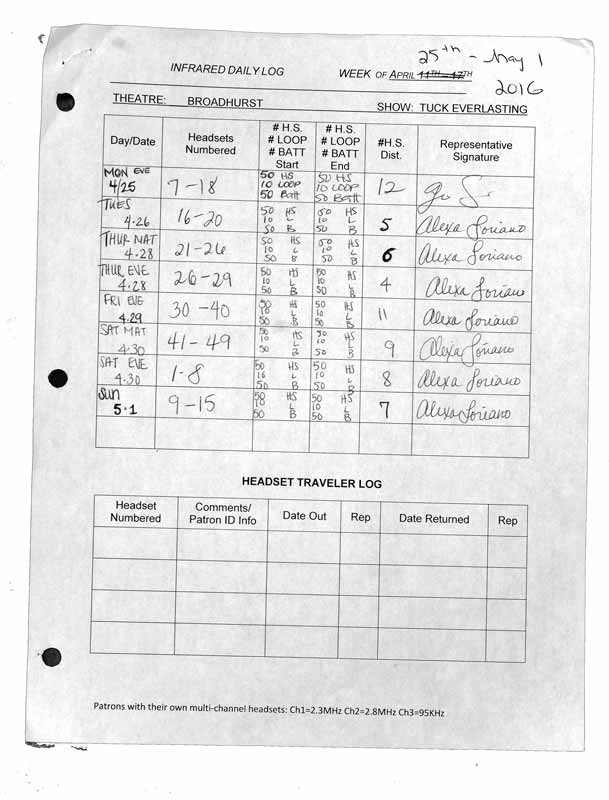 25th - May 1
INFRARED DAILY LOG WEEK OF APRIL 11TH – 17TH
2016
THEATRE: BROADHURST SHOW: TUCK EVERLASTING
Day/Date Headsets Numbered # H.S. # LOOP # BATT Start # H.S. # LOOP # BATT End #H.S. Dist. Representative Signature
MON EVE 4/25 7-18 50 HS 10 LOOP 50 Batt 50 HS 10 LOOP 50 Batt 12
TUES 4.26 16-20 50 HS 10 L 50 B 50 HS 10 L 50 B 5 Alexa Soriano
THUR MAT 4.28 21-26 50 HS 10 L 50 B 50 HS 10 L 50 B 6 Alexa Soriano
THUR EVE 4.28 26-29 50 HS 10 L 50 B 50 HS 10 L 50 B 4 Alexa Soriano
FRI EVE 4.29 30-40 50 HS 10 L 50 B 50 HS 10 L 50 B 11 Alexa Soriano
SAT MAT 4.30 41-49 50 HS 10 L 50 B 50 HS 10 L 50 B 9 Alexa Soriano
SAT EVE 4.30 1-8 50 HS 10 L 50 B 50 HS 10 L 50 B 8 Alexa Soriano
SUN 5.1 9-15 50 HS 10 L 50 B 50 HS 10 L 50 B 7 Alexa Soriano
HEADSET TRAVELER LOG
Headset Numbered Comments/ Patron ID Info Date Out Rep Date Returned Rep
Patrons with their own multi-channel headsets: Ch1=2.3MHz Ch2=2.8MHz Ch3=95KHz